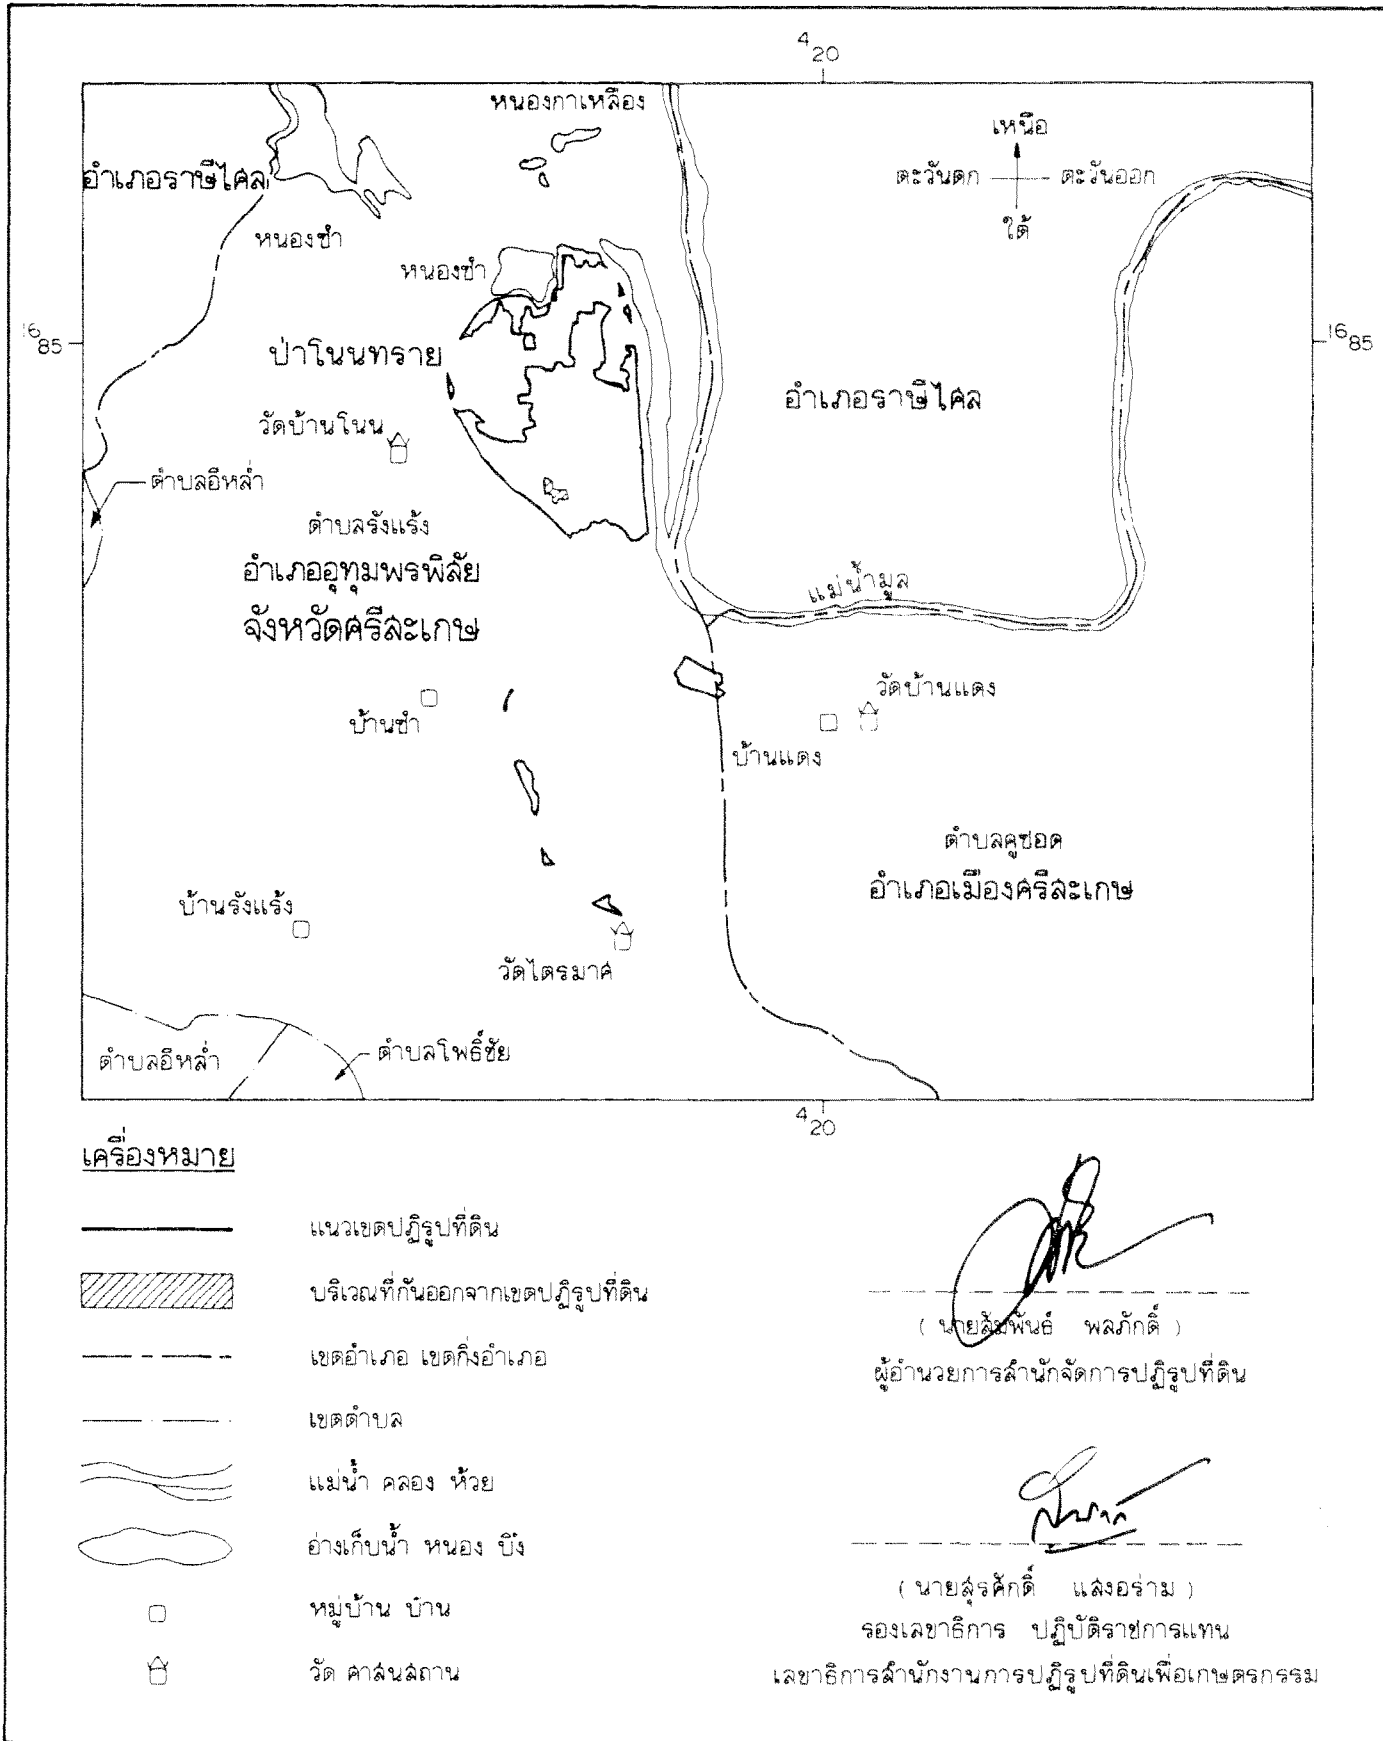 420
หนองกาเหลือง
เหนือ
อำเภอราษีไศล
ตะวันตก ตะวันออก
ใต้
หนองซำ
หนองซำ
1685
1685
ป่าโนนทราย
อำเภอราษีไศล
วัดบ้านโนน
ตำบลอีหล่ำ
ตำบลรังแร้ง
อำเภออุทุมพรพิสัย
แม่น้ำมูล
จังหวัดศรีสะเกษ
วัดบ้านแดง
บ้านซำ
บ้านแดง
ตำบลคูซอด
อำเภอเมืองศรีสะเกษ
บ้านรังแร้ง
วัดไตรมาศ
ตำบลอีหล่ำ
ตำบลโพธิ์ชัย
420
เครื่องหมาย
แนวเขตปฏิรูปที่ดิน
บริเวณที่กันออกจากเขตปฏิรูปที่ดิน
เขตอำเภอ เขตกิ่งอำเภอ
เขตตำบล
แม่น้ำ คลอง ห้วย
อ่างเก็บน้ำ หนอง บึง
หมู่บ้าน บ้าน
วัด ศาสนสถาน
( นายสัมพันธ์ พลภักดิ์ )
ผู้อำนวยการสำนักจัดการปฏิรูปที่ดิน
( นายสุรศักดิ์ แสงอร่าม )
รองเลขาธิการ ปฏิบัติราชการแทน
เลขาธิการสำนักงานการปฏิรูปที่ดินเพื่อเกษตรกรรม